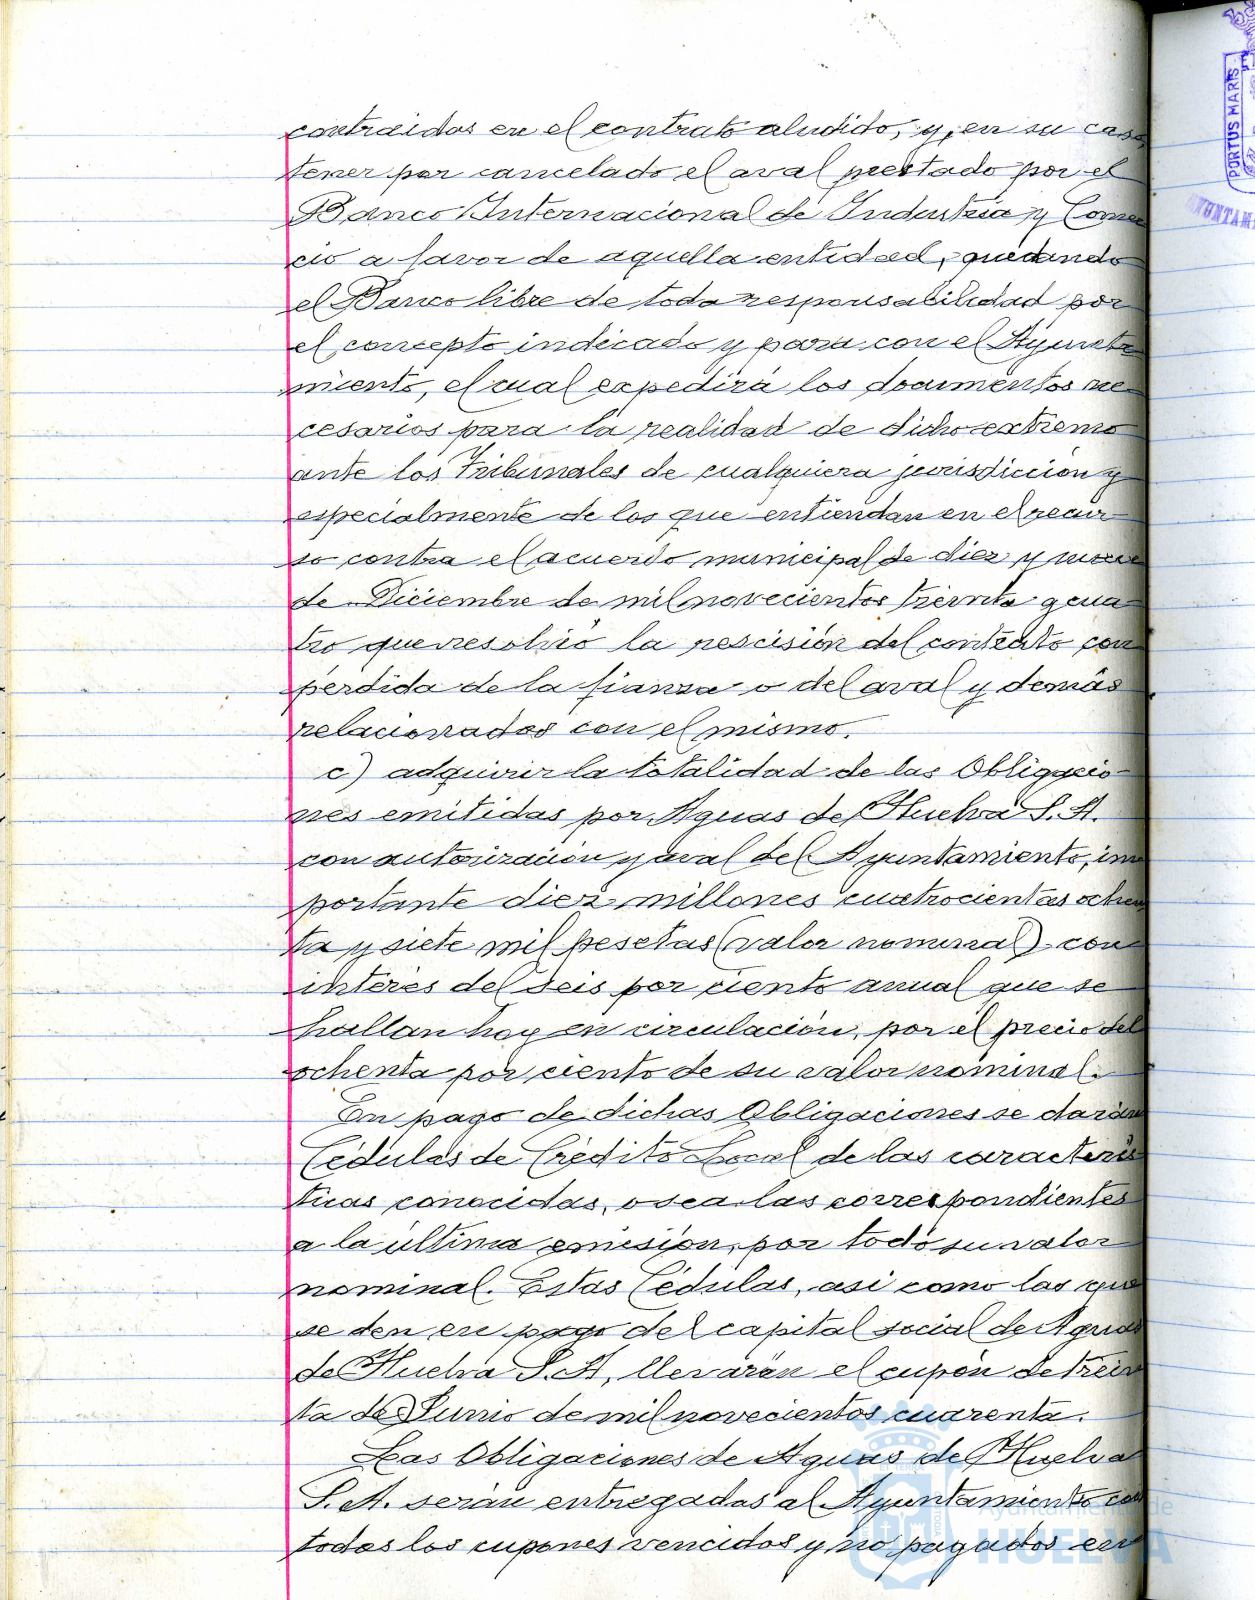 contraidos en el contrato aludido, y, en su caso,
tener por cancelado el aval prestado por el
Banco Internacional de Industria y Comer
cio a favor de aquella entidad, quedando
el Banco libre de toda responsabilidad por
el concepto indicado y para con el Ayunta
miento, el cual expedirá los documentos ne
cesarios para la realidad de dicho extremo
ante los Tribunales de cualquiera jurisdicción y
especialmente de los que entiendan en el recur
so contra el acuerdo municipal de diez y nueve
de Diciembre de mil novecientos treinta y cua
tro que resolvió la rescisión del contrato con
perdida de la fianza o del aval y demás
relacionados con el mismo.
c) adquirir la totalidad de las Obligacio
nes emitidas por Aguas de Huelva S. A.
con autorización y aval del Ayuntamiento, im
portante diez millones cuatrocientas ochen
ta y siete mil pesetas (valor nominal) con
interés del seis por ciento anual que se
hallan hoy en circulación, por el precio del
ochenta por ciento de su valor nominal.
En pago de dichas Obligaciones se darán
Cédulas de Crédito Local de las caracterís
ticas conocidas, o sea las correspondientes
a la última emisión, por todo su valor
nominal. Estas Cédulas, asi como las que
se den en pago del capital social de Aguas
de Huelva S. A, llevarán el cupón de trein
ta de Junio de mil novecientos cuarenta.
Las Obligaciones de Aguas de Huelva
S. A. serán entregadas al Ayuntamiento con
todos los cupones vencidos y no pagados en
PORTUS MARIS
Ayuntamiento de
HUELVA